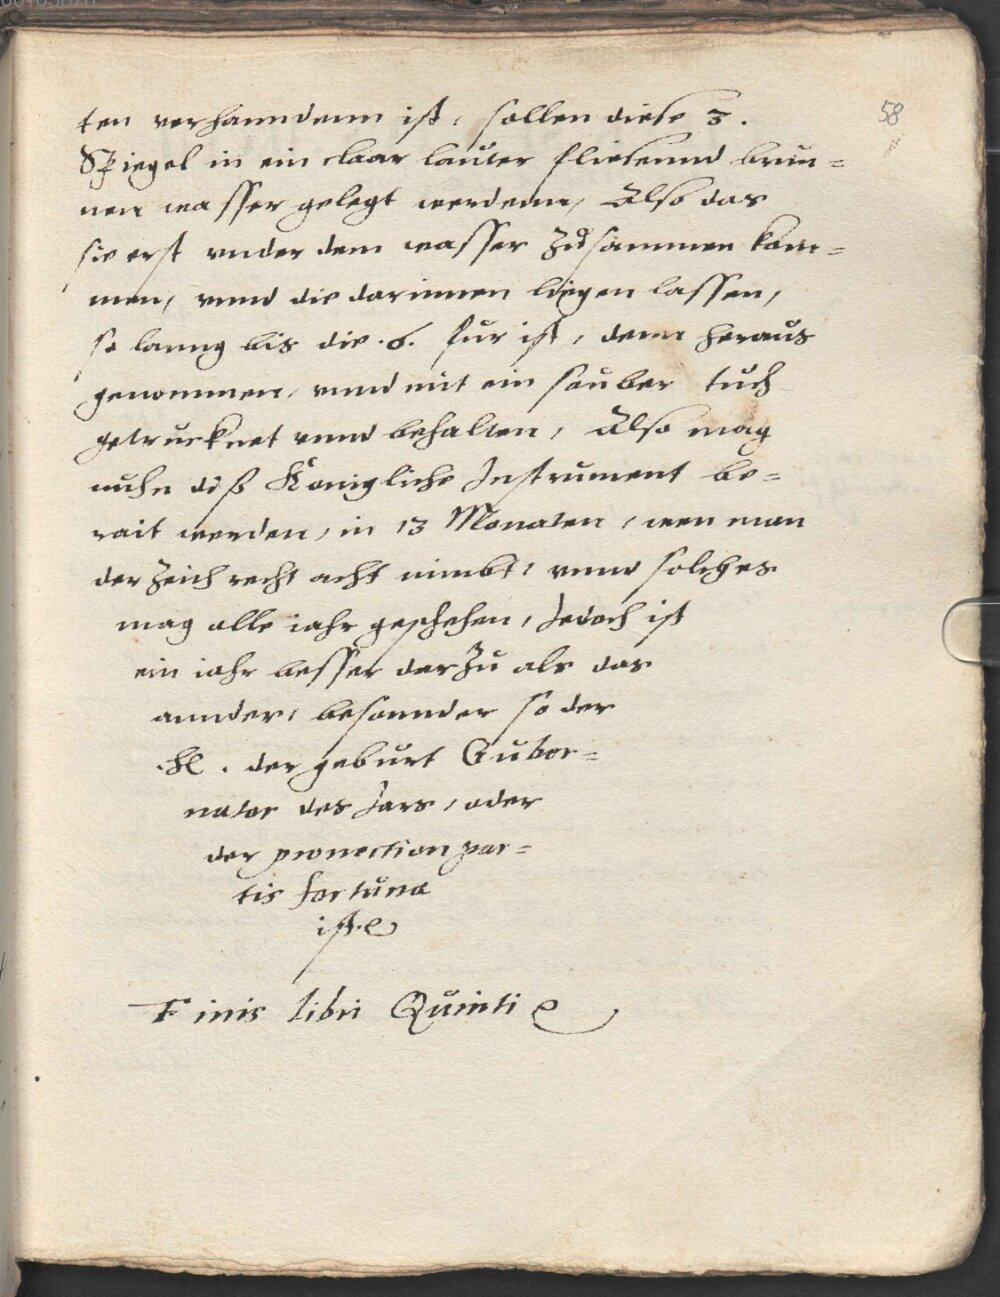 58
ten verhanndenn ist, sollen diese 3.
Spiegel in ein claar lauter fliesennd brun=
nen wasser gelegt werdenn, Also das
sie erst vnder dem wasser Zusammen kom=
men, vnnd die darinnen liegen lassen,
so lanng bis die .6. fur ist, denn heraus
genommen, vnnd mit ein sauber tuch
getrucknet vnnd behalten, Also mag
nuhn diß Konigliche Instrument be=
rait werden, in 13 Monaten, wen man
der Zeich recht acht nimbt, vnnd solches
mag alle iahr geschehen, Jedoch ist
ein iahr besser darZu als das
annder, besonnder so der
der geburt Guber=
nator des Jars, oder
der par=
tis fortuna
ist.
Finis libri Quinti